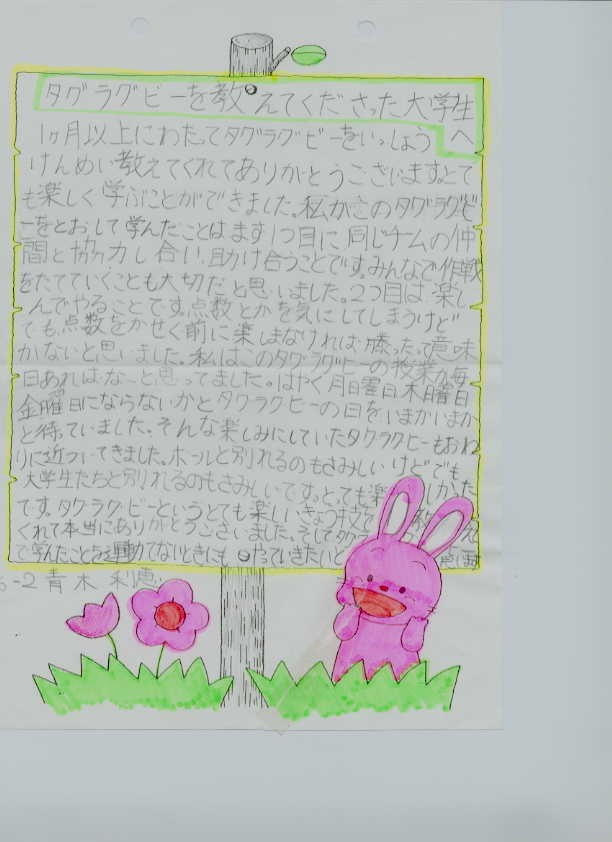 タグラグビーを教えてくださった大学生
へ
1ヶ月以上にわたってタグラグビーをいっしょう
けんめい教えてくれてありがとうございます。とて
も楽しく学ぶことができました。私がこのタグラグビ
ーをとおして学んだことはまず1つ目に同じチームの仲
間と協力し合い、助け合うことです。みんなで作戦
をたてていくことも大切だと思いました。2つ目は楽し
んでやることです。点数とかを気にしてしまうけど
でも点数をかせぐ前に楽しまなければ勝ったって意味
がないと思いました。私はこのタグラグビーの授業が毎
日あればな〜と思ってました。はやく月日曜日木曜日
金曜日にならないかとタグラグビーの日をいまかいまか
と待っていました。そんな楽しみにしていたタグラグビーもおわ
りに近づいてきました。ボールと別れるのもさみしいけどでも
大学生たちと別れるのもさみしいです。とても楽しかった
です。タグラグビーというとても楽しいきょう技を教え
くれて本当にありがとうございました。そして
で学んだことを運動でないときにもやっていきたいと
6-2 青木